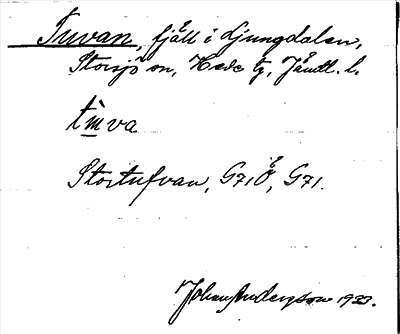 Tuvan, fjäll i Ljungdalen,
Storsjö sn, Hede tg, Jämtl. l.
Stortufvan, G71Ö, G71.
Johan Anderson 1923.